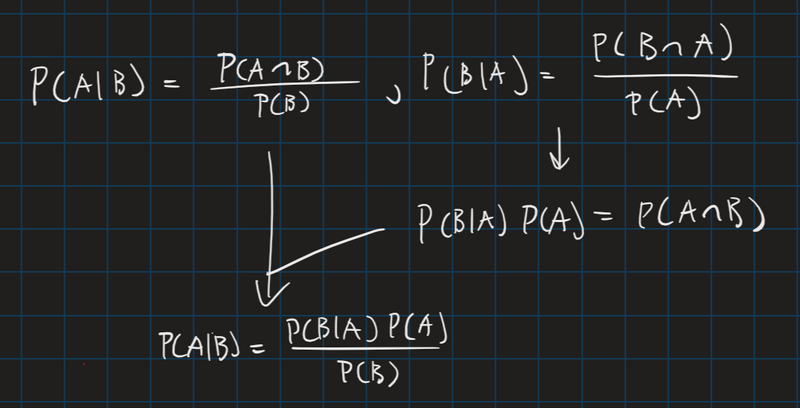 P(A|B) = P(A∩B) / P(B) , P(B|A) = P(B∩A) / P(A)
P(B|A) P(A) = P(A∩B)
P(A|B) = P(B|A) P(A) / P(B)